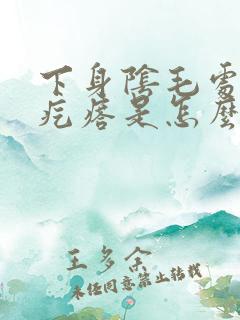 下身陰毛處
疙瘩是怎麼
王多余
未經同意禁止轉載